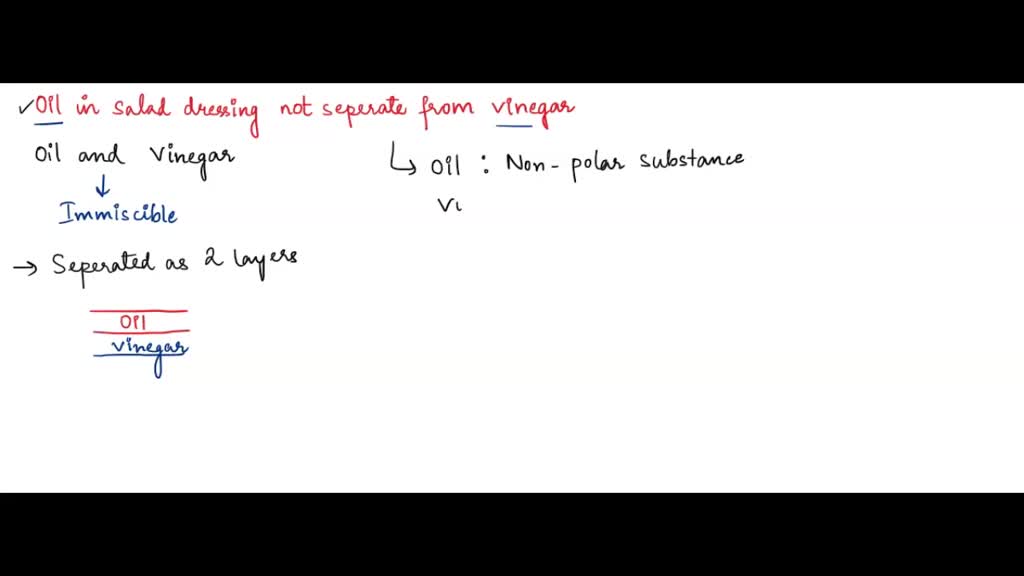 ✓Oil in salad dressing not seperate from vinegar
Oil and Vinegar
↓
Immiscible
→ Seperated as 2 layers
Oil
vinegar
↳ Oil : Non-polar substance
Vi